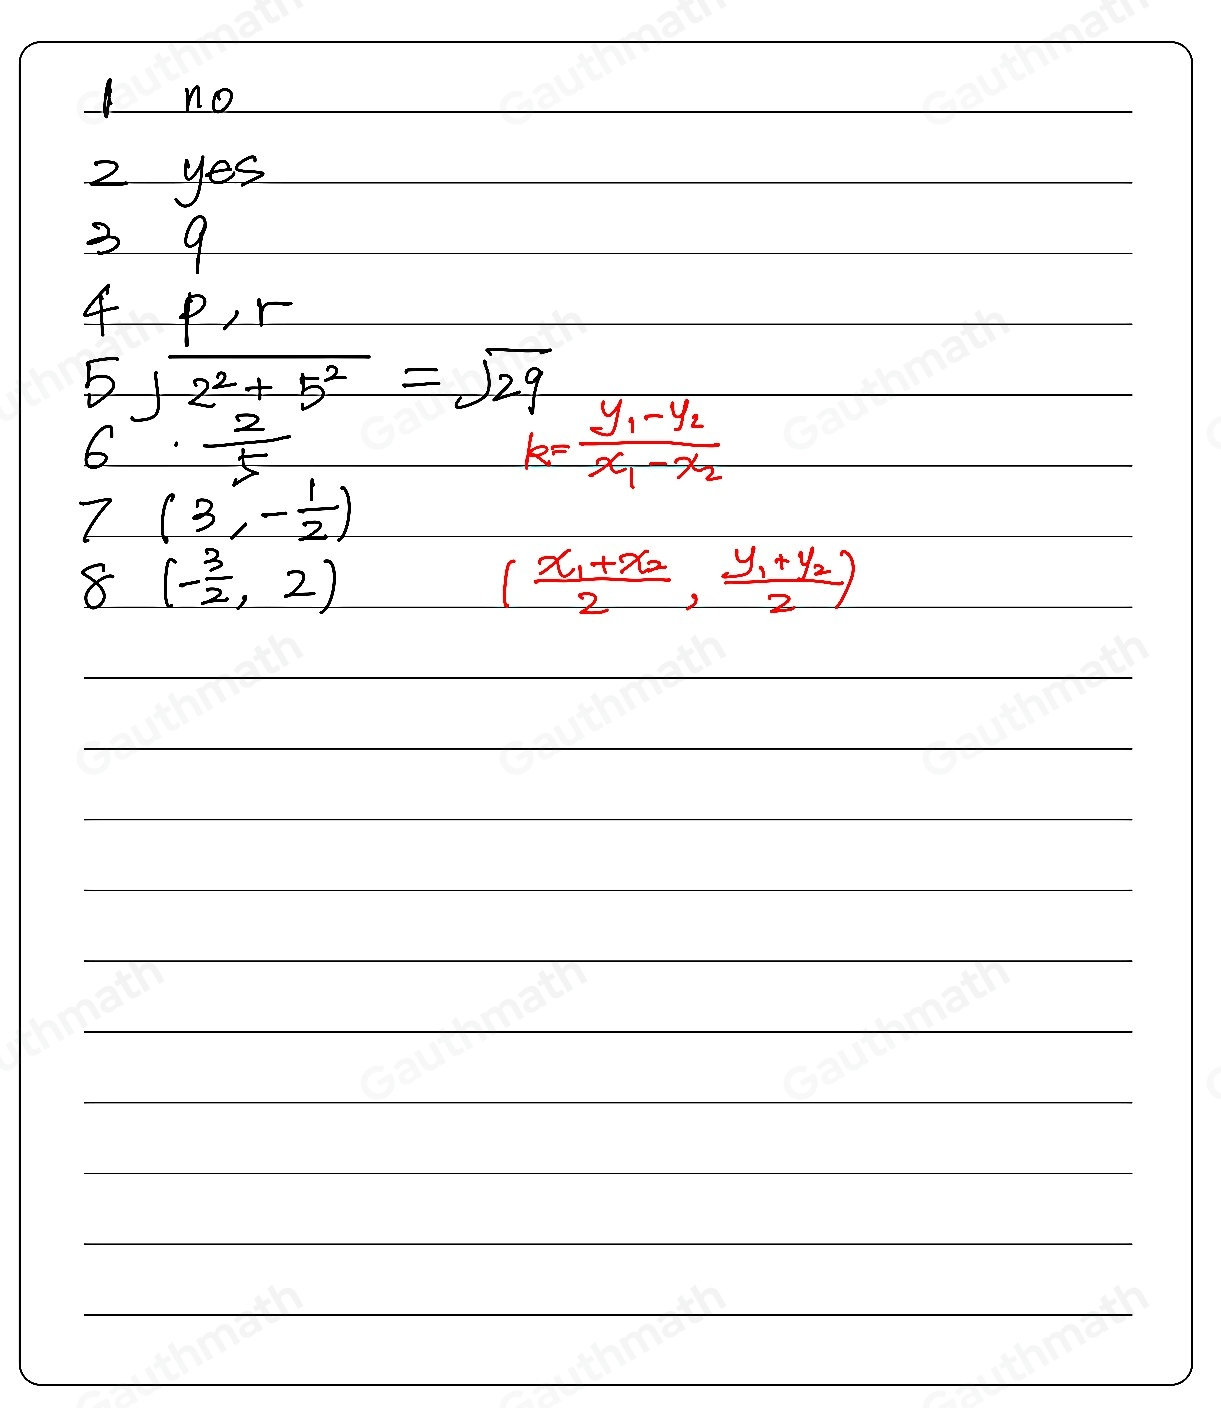 1 no
2 yes
3 9
4 p, r
5 √(2² + 5²) = √29
6 · 2/5 k = (y₁ - y₂)/(x₁ - x₂)
7 (3, -1/2)
8 (-3/2, 2) ((x₁ + x₂)/2, (y₁ + y₂)/2)
Gauthmath